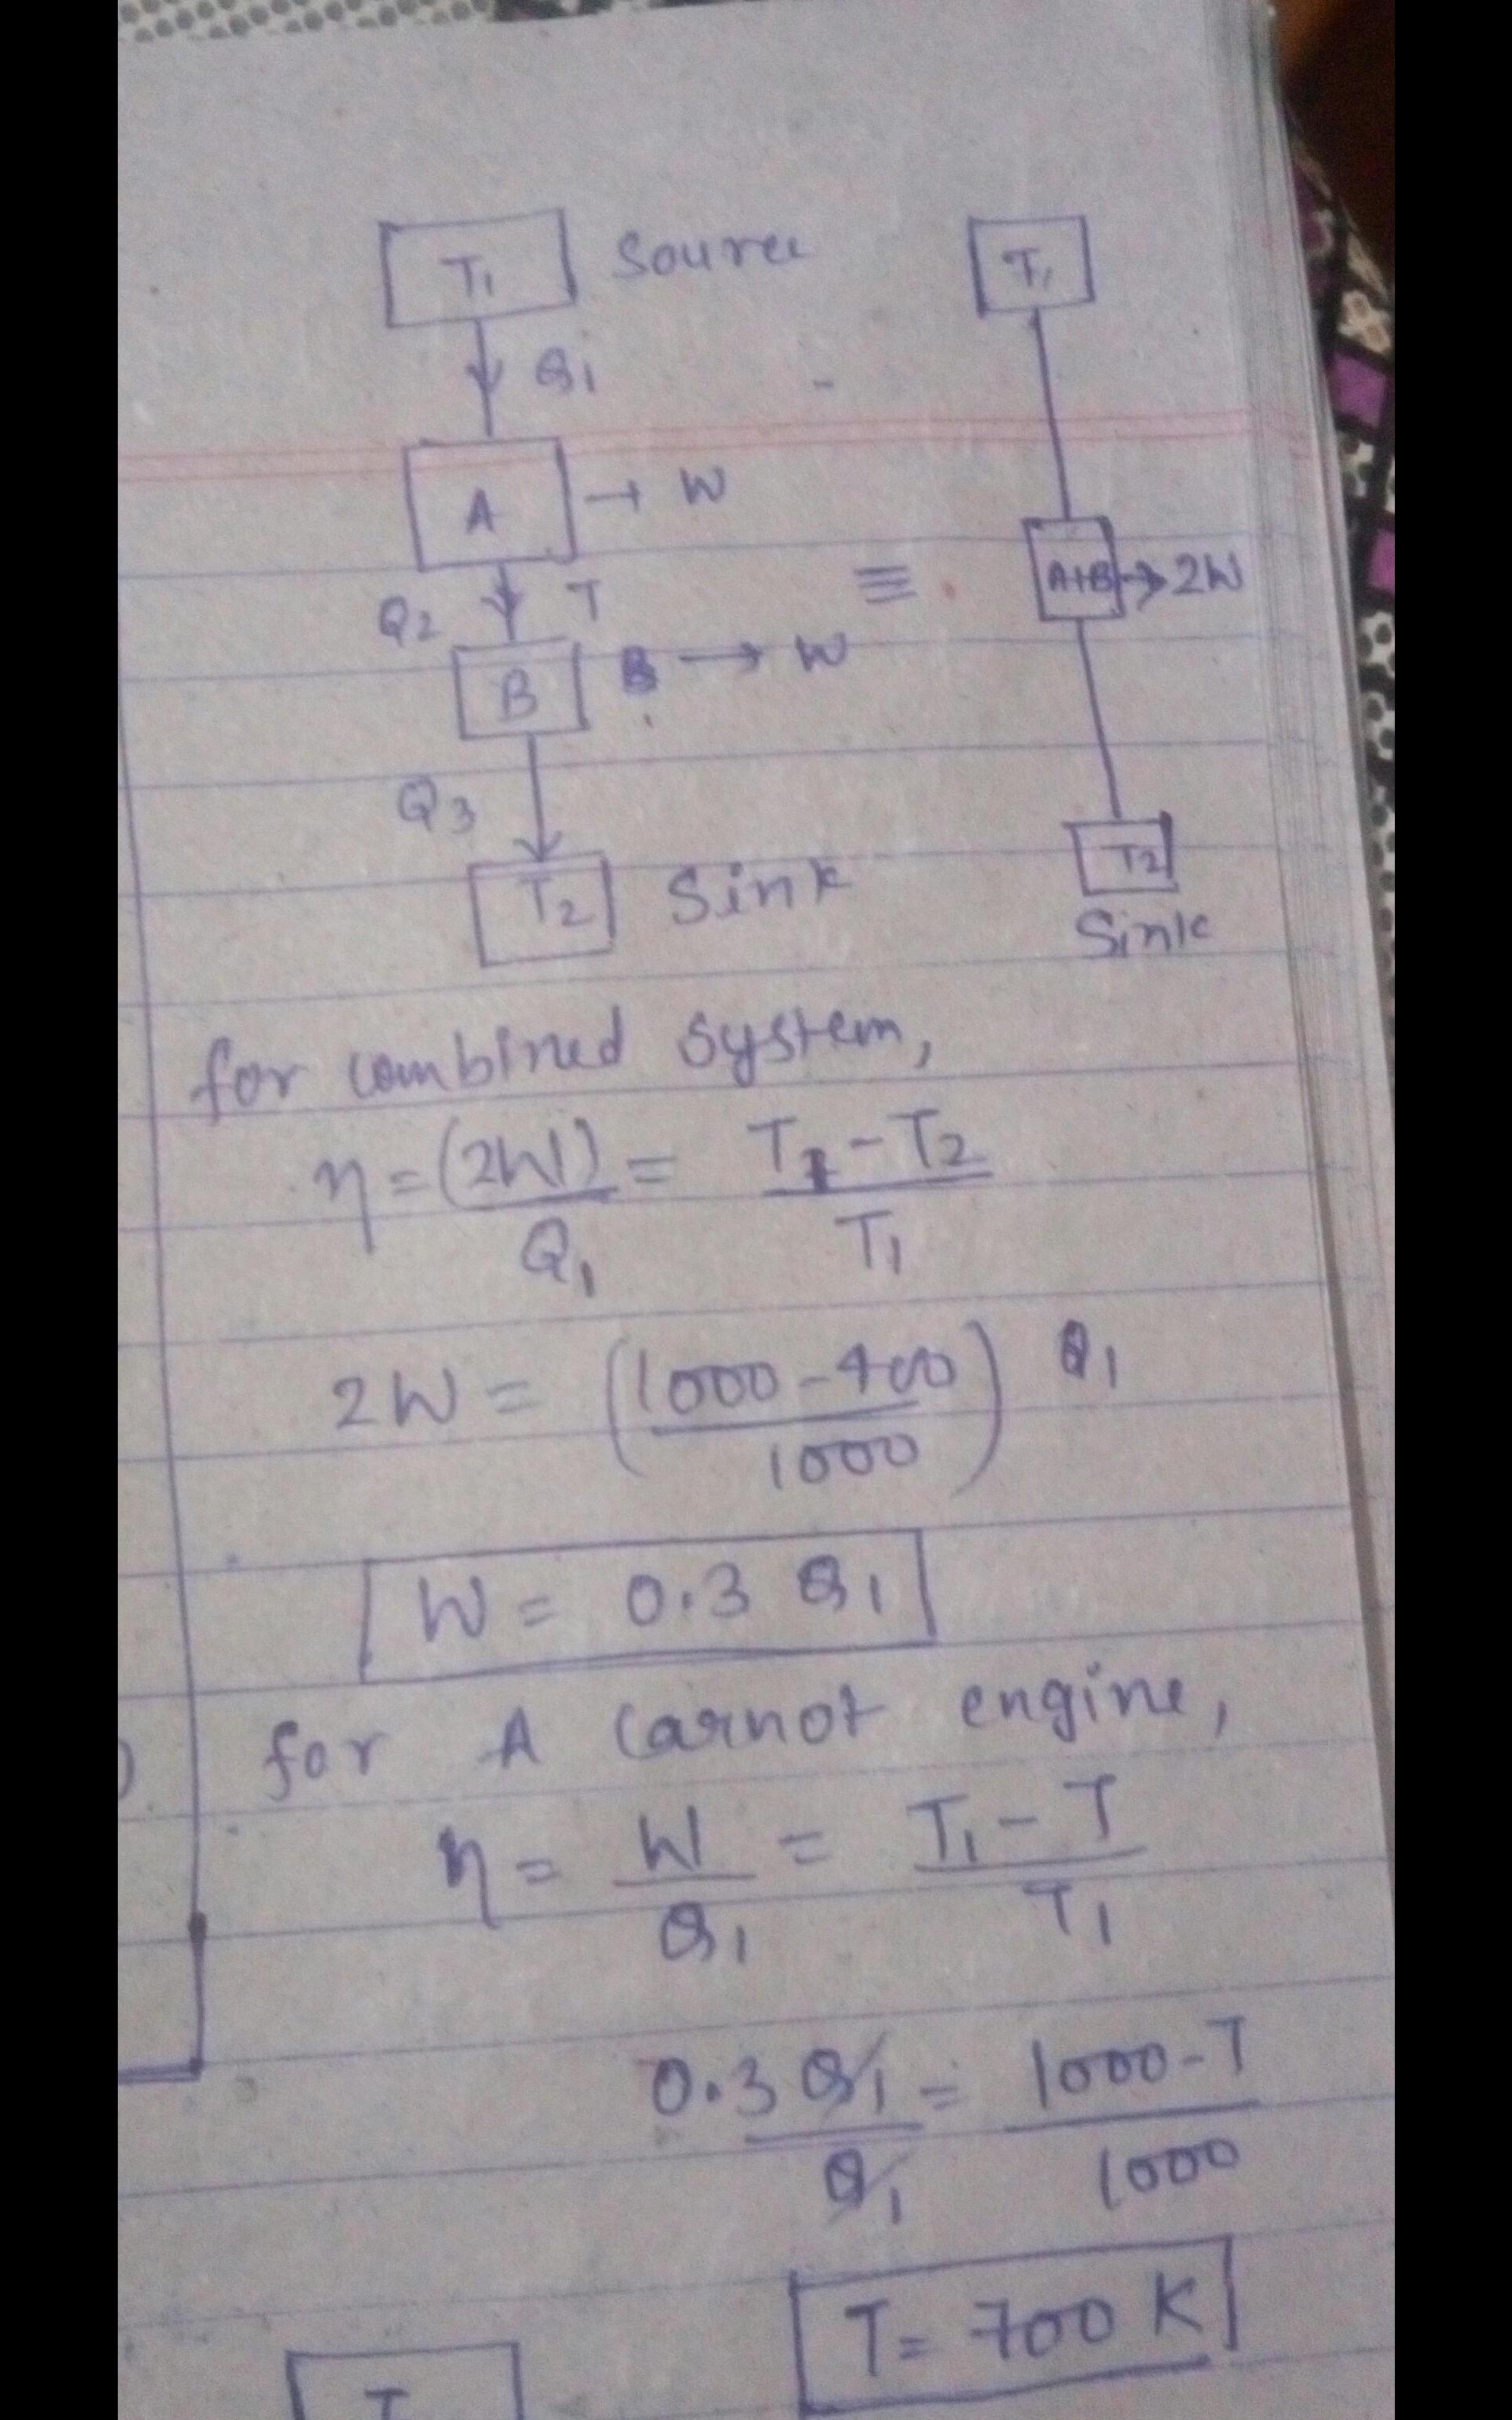 T1 Source T1
Q1
A → W
Q2 T ≡ A+B → 2W
B B → W
Q3
T2 Sink T2
Sink
for combined system,
η = (2W) / Q1 = T1 - T2 / T1
2W = (1000 - 400 / 1000) Q1
W = 0.3 Q1
for A Carnot engine,
η = W / Q1 = T1 - T / T1
0.3 Q1 / Q1 = 1000 - T / 1000
T = 700 K